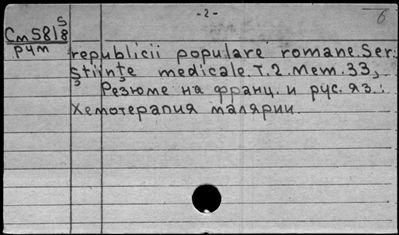 -2-
б
См5818
5
рум
republicii populare romane. Ser.
Științe medicale. T.2. Mem. 33,
Резюме на франц. и рус. яз.:
Хемотерапия малярии.